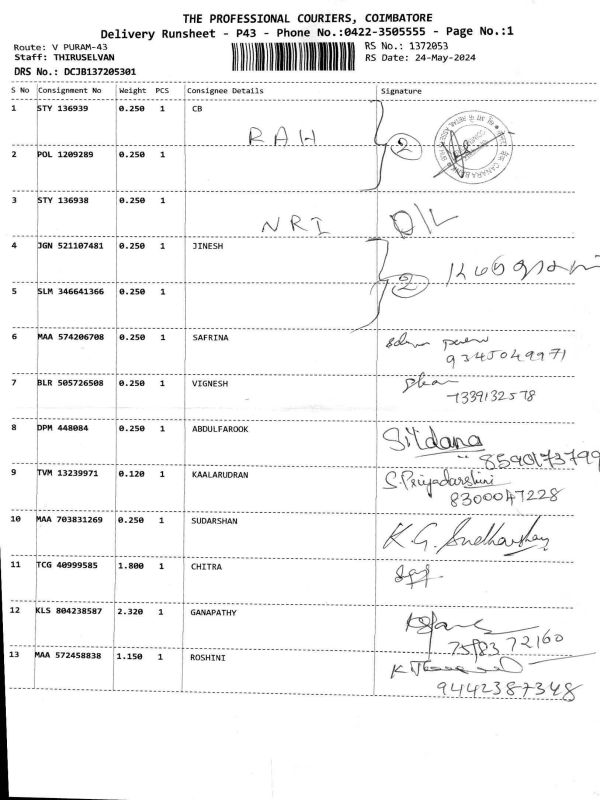 THE PROFESSIONAL COURIERS, COIMBATORE
Delivery Runsheet - P43 - Phone No.:0422-3505555 - Page No.:1
Route: V PURAM-43
RS No.: 1372053
Staff: THIRUSELVAN
RS Date: 24-May-2024
DRS No.: DCJB137205301
S No Consignment No Weight PCS Consignee Details Signature
1 STY 136939 0.250 1 CB
RAH 2
2 POL 1209289 0.250 1
3 STY 136938 0.250 1
NRI D/L
4 JGN 521107481 0.250 1 JINESH
2
5 SLM 346641366 0.250 1
6 MAA 574206708 0.250 1 SAFRINA
9345049971
7 BLR 505726508 0.250 1 VIGNESH
7339132578
8 DPM 448084 0.250 1 ABDULFAROOK
Sitdana
8590173799
9 TVM 13239971 0.120 1 KAALARUDRAN S.Priyadarshini
8300047228
10 MAA 703831269 0.250 1 SUDARSHAN
K.G. Sudharshan
11 TCG 40999585 1.800 1 CHITRA
12 KLS 804238587 2.320 1 GANAPATHY
75983 72160
13 MAA 572458838 1.150 1 ROSHINI
9442387348